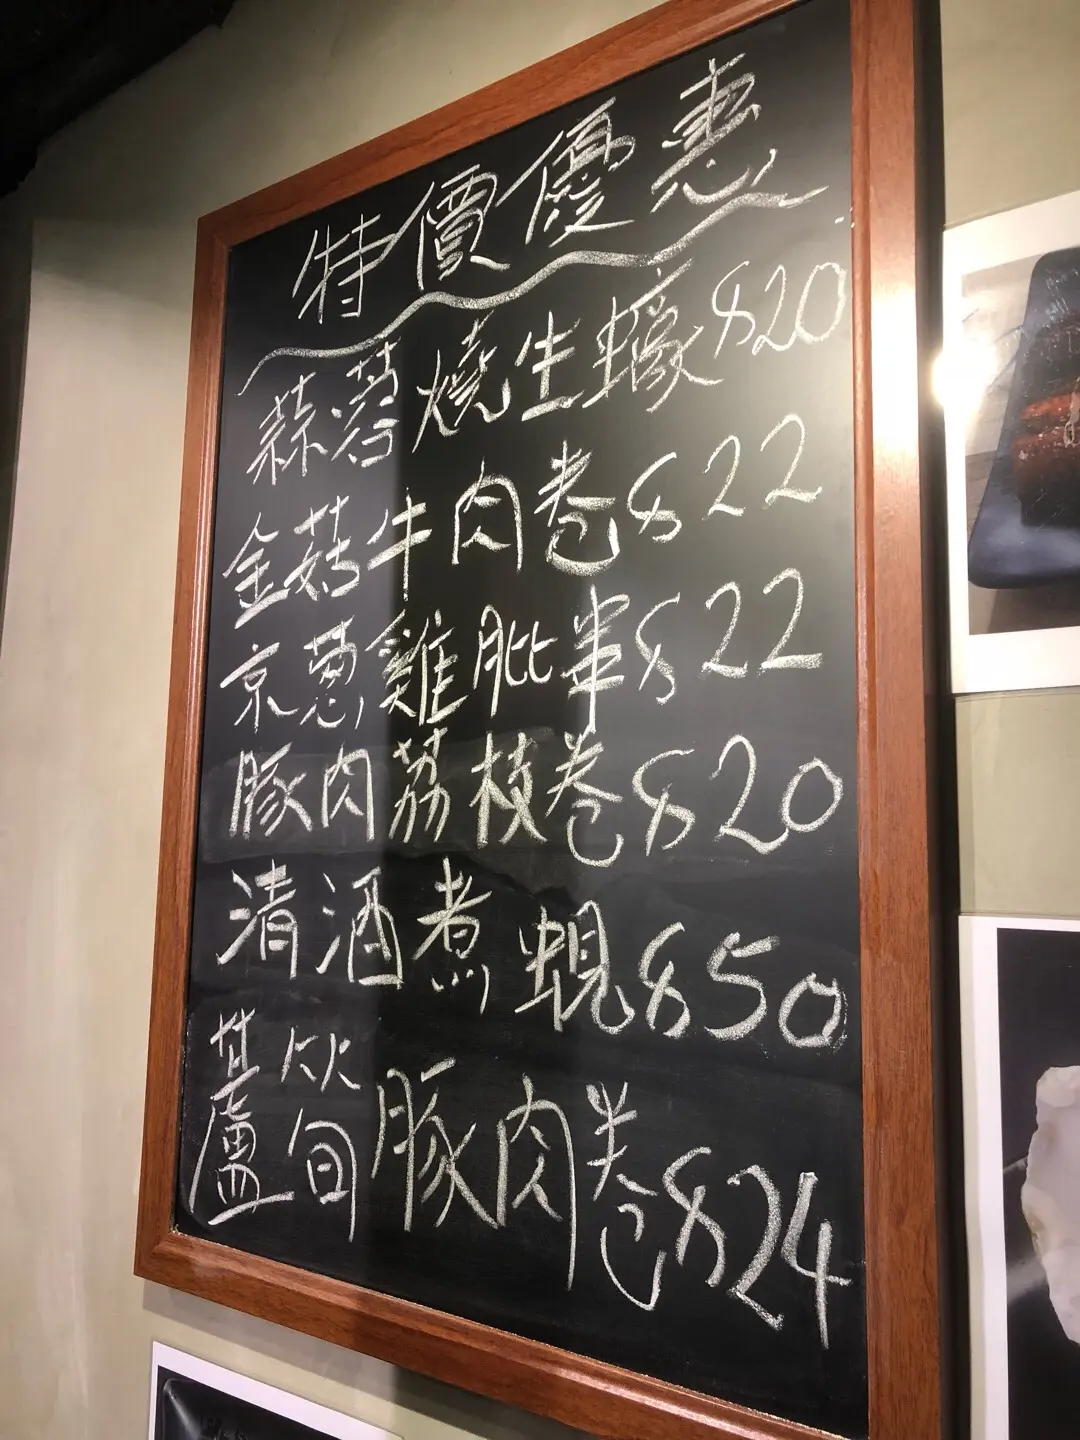 特價優惠
蒜蓉燒生蠔$20
金菇牛肉卷$22
京蔥雞肶串$22
豚肉荔枝卷$20
清酒煮蜆$50
蘆筍豚肉卷$24